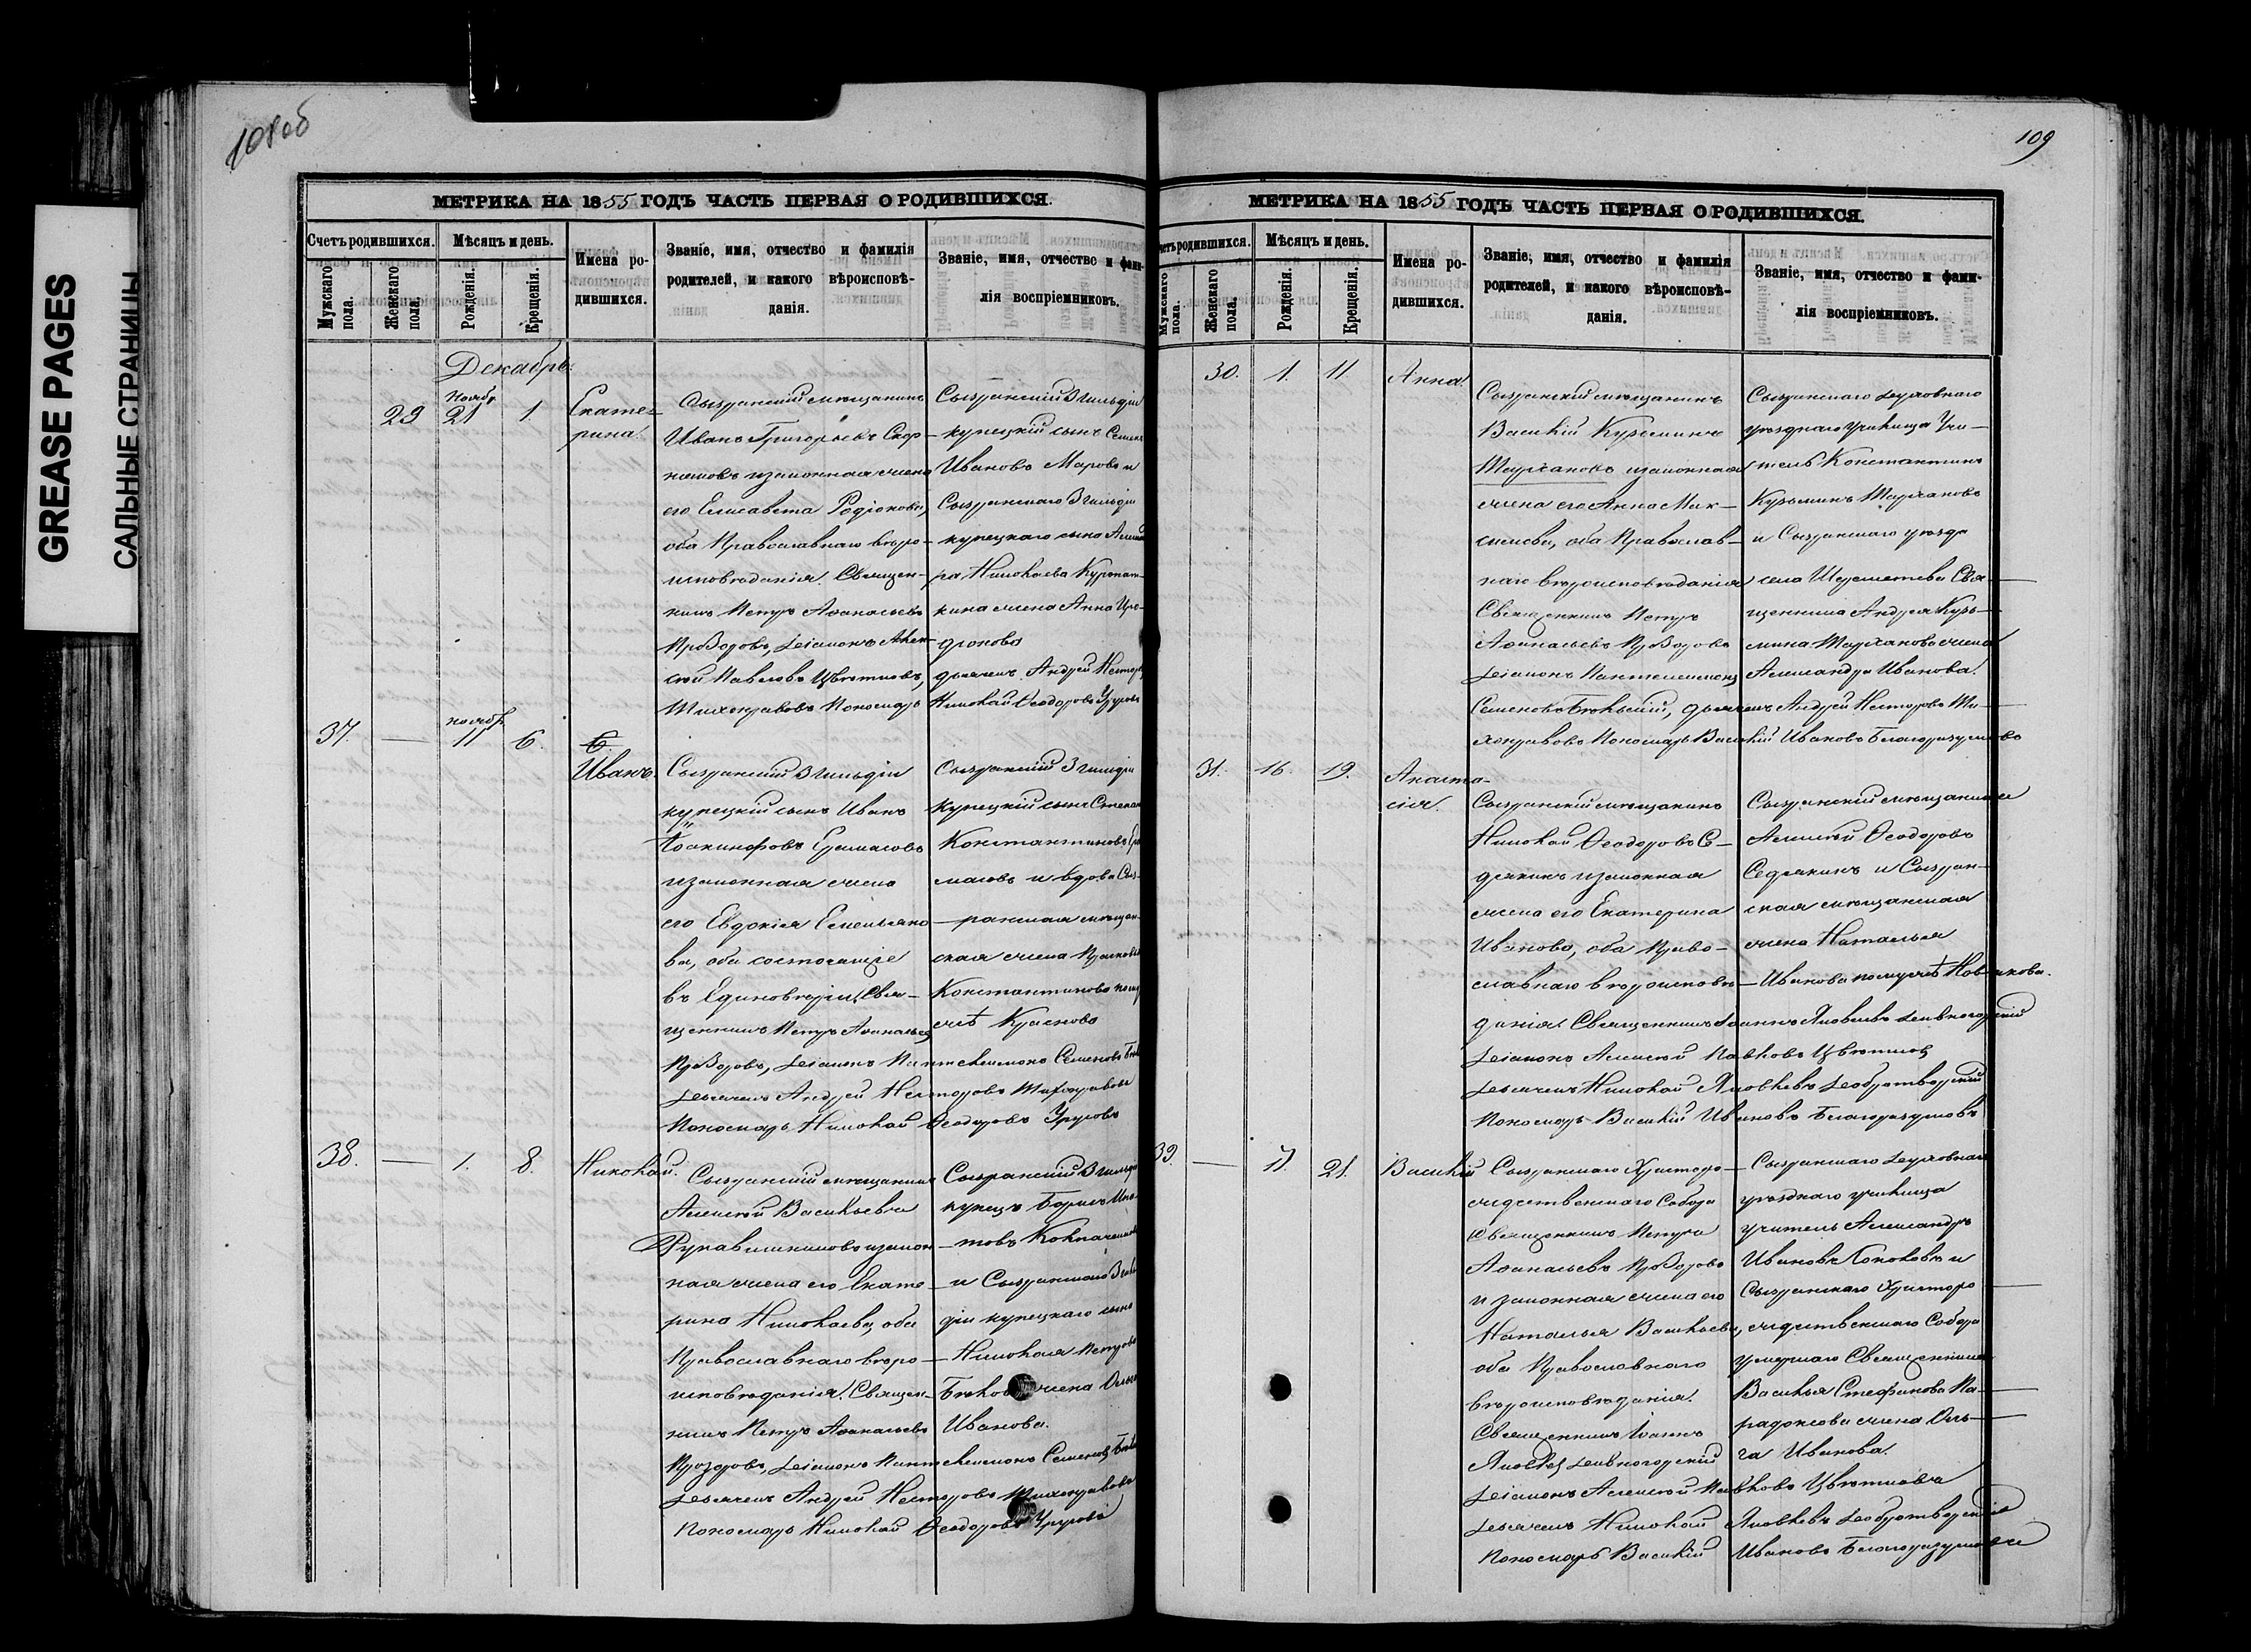 GREASE PAGES
САЛЬНЫЕ СТРАНИЦЫ
108об
МЕТРИКА НА 1855 ГОДЪ ЧАСТЬ ПЕРВАЯ О РОДИВШИХСЯ.
Счетъ родившихся.
Мѣсяцъ и день.
Мужскаго пола.
Женскаго пола.
Рожденія.
Крещенія.
Имена ро-
дившихся.
Званіе, имя, отчество и фамилія
родителей, и какого вѣроисповѣ-
данія.
Званіе, имя, отчество и фами-
лія воспріемниковъ.
Декабрь.
29
Ноябр.
21
1.
Екате-
рина.
Сызранскій мѣщанинъ
Иванъ Григорьевъ
и законная жена
его Елисавета Родіонова,
оба Православнаго вѣро-
исповѣданія. Священ-
никъ Петръ Аѳанасьевъ
Прозоровъ, Діаконъ Алек-
сѣй Павловъ Цвѣтковъ,
Тихонравовъ Пономарь
Сызранскій 3 гильдіи
купецкій сынъ Семенъ
Ивановъ Маровъ и
Сызранскаго 3 гильдіи
купецкаго сына
Николаева
жена Анна
дьячекъ Андрей Несторов
Николай Ѳеодоровъ Урусовъ
37.
ноябр.
11
6.
Иванъ.
Сызранскій 3 гильдіи
купецкій сынъ Иванъ
Іоакинфовъ Ермасовъ
и законная жена
его Евдокія Емельяно-
ва, оба состоящіе
въ Единовѣріи. Свя-
щенникъ Петръ Аѳанасьев
Прозоровъ, Діаконъ Пантелеимонъ Семеновъ
Дьячекъ Андрей Несторовъ Тихонравовъ
Пономарь Николай Ѳеодоровъ Урусовъ
Сызранскій 3 гильдіи
купецкій сынъ Степан
Константиновъ Ер-
масовъ и вдова Сыз-
ранская мѣщан-
ская жена Прасковья
Константинова по му-
жѣ Краснова
38.
1.
8.
Николай.
Сызранскій мѣщанинъ
Алексѣй Васильевъ
Рукавишниковъ и закон-
ная жена его Екате-
рина Николаева, оба
Православнаго вѣро-
исповѣданія. Священ-
никъ Петръ Аѳанасьевъ
Прозоровъ, Діаконъ Пантелеимонъ Семеновъ
Дьячекъ Андрей Несторовъ Тихонравовъ
Пономарь Николай Ѳеодоровъ Урусовъ
Сызранскій 3 гильдіи
купецъ Борисъ
и Сызранскаго 3 гиль-
діи купецкаго сына
Николая Петрова
жена
Иванова.
109
МЕТРИКА НА 1855 ГОДЪ ЧАСТЬ ПЕРВАЯ О РОДИВШИХСЯ.
Счетъ родившихся.
Мѣсяцъ и день.
Мужскаго пола.
Женскаго пола.
Рожденія.
Крещенія.
Имена ро-
дившихся.
Званіе, имя, отчество и фамилія
родителей, и какого вѣроисповѣ-
данія.
Званіе, имя, отчество и фами-
лія воспріемниковъ.
30.
1.
11.
Анна.
Сызранскій мѣщанинъ
Василій Кузьминъ
и законная
жена его Анна Мак-
симова, оба Православ-
наго вѣроисповѣданія
Священникъ Петръ
Аѳанасьевъ Прозоровъ
Діаконъ Пантелеимонъ
Семеновъ дьячекъ Андрей Несторовъ Ти-
хонравовъ Пономарь Василій Ивановъ Благоразумовъ
Сызранскаго духовнаго
уѣзднаго училища Учи-
тель Константинъ
Кузьминъ
и Сызранскаго уѣзда
села Шереметева Свя-
щенника Андрея Кузь-
мина жена
Александра Иванова.
31.
16.
19.
Анаста-
сія.
Сызранскій мѣщанинъ
Николай Ѳеодоровъ Се-
дякинъ и законная
жена его Екатерина
Иванова, оба Право-
славнаго вѣроисповѣ-
данія. Священникъ Іоаннъ Яковлевъ Дивногорскій
Діаконъ Алексѣй Павловъ Цвѣтковъ
Дьячекъ Николай Яковлевъ Добротворскій
Пономарь Василій Ивановъ Благоразумовъ
Сызранскій мѣщанинъ
Алексѣй Ѳеодоровъ
Седякинъ и Сызран-
ская мѣщанская
жена Наталья
Иванова по мужѣ Новикова.
39.
21.
Василій
Сызранскаго Христоро-
ждественскаго Собора
Священникъ Петръ
Аѳанасьевъ Прозоровъ
и законная жена его
Наталья Васильева,
оба Православнаго
вѣроисповѣданія.
Священникъ Іоаннъ
Яковлев Дивногорскій
Діаконъ Алексѣй Павловъ Цвѣтковъ
Дьячекъ Николай Яковлевъ Добротворскій
Пономарь Василій Ивановъ Благоразумовъ
Сызранскаго духовнаго
уѣзднаго училища
учитель Александръ
Ивановъ и
Сызранскаго Христоро-
ждественскаго Собора
умершаго Священника
Василья Стефанова Па-
радоксова жена Оль-
га Иванова.